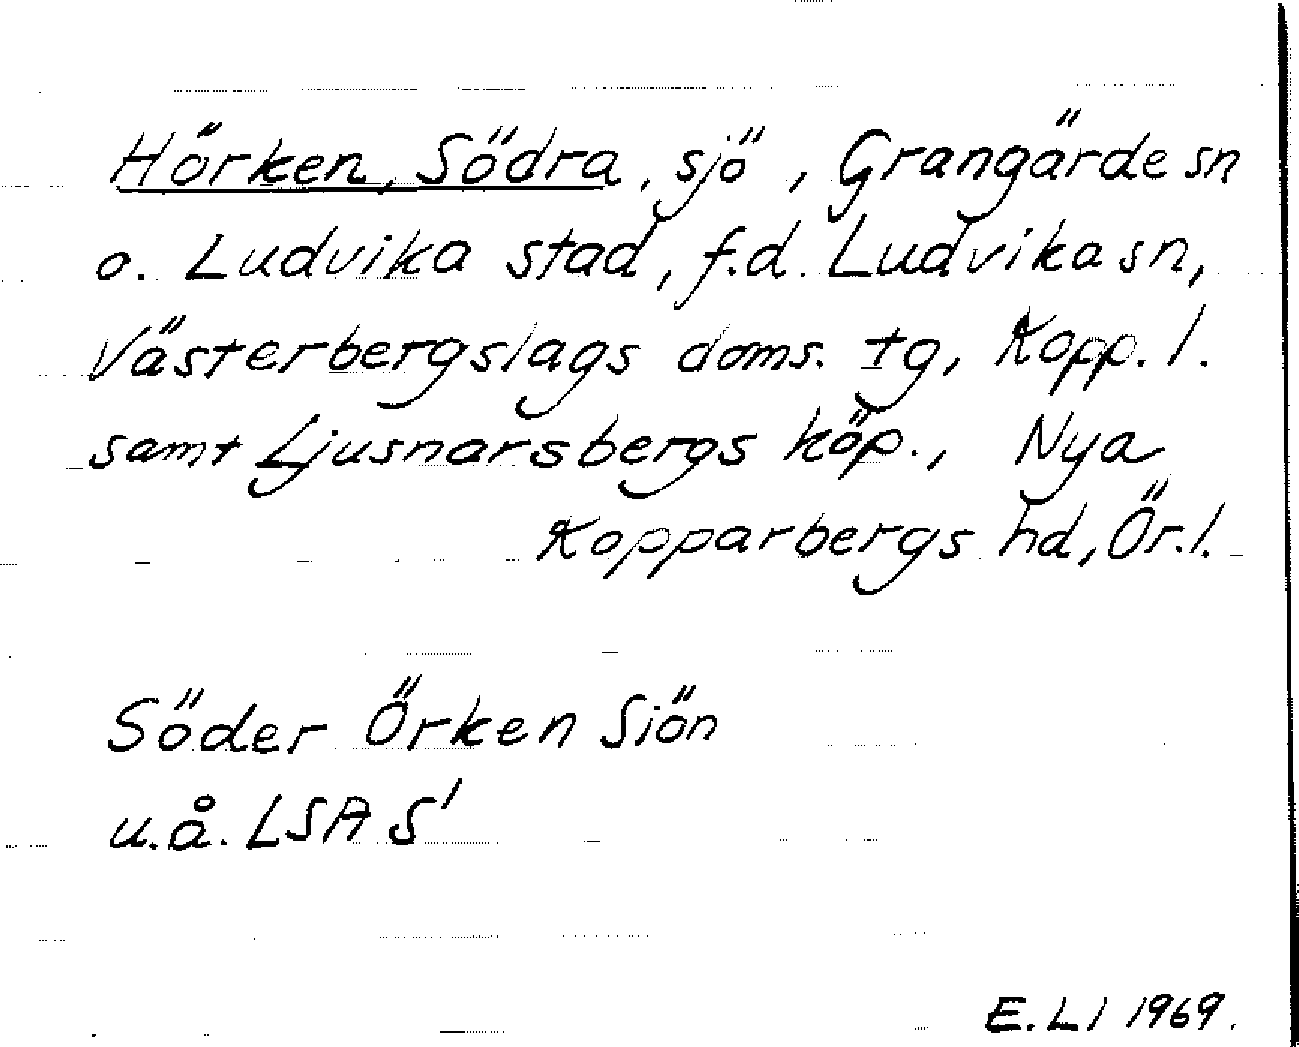 Hörken, Södra, sjö, Grangärde sn
o. Ludvika stad, f.d. Ludvika sn,
Västerbergslags doms. tg, Kopp. l.
samt Ljusnarsbergs köp., Nya
Kopparbergs hd, Ör. l.
Söder Örken Siön
u.å. LSA S1
E. LI 1969.